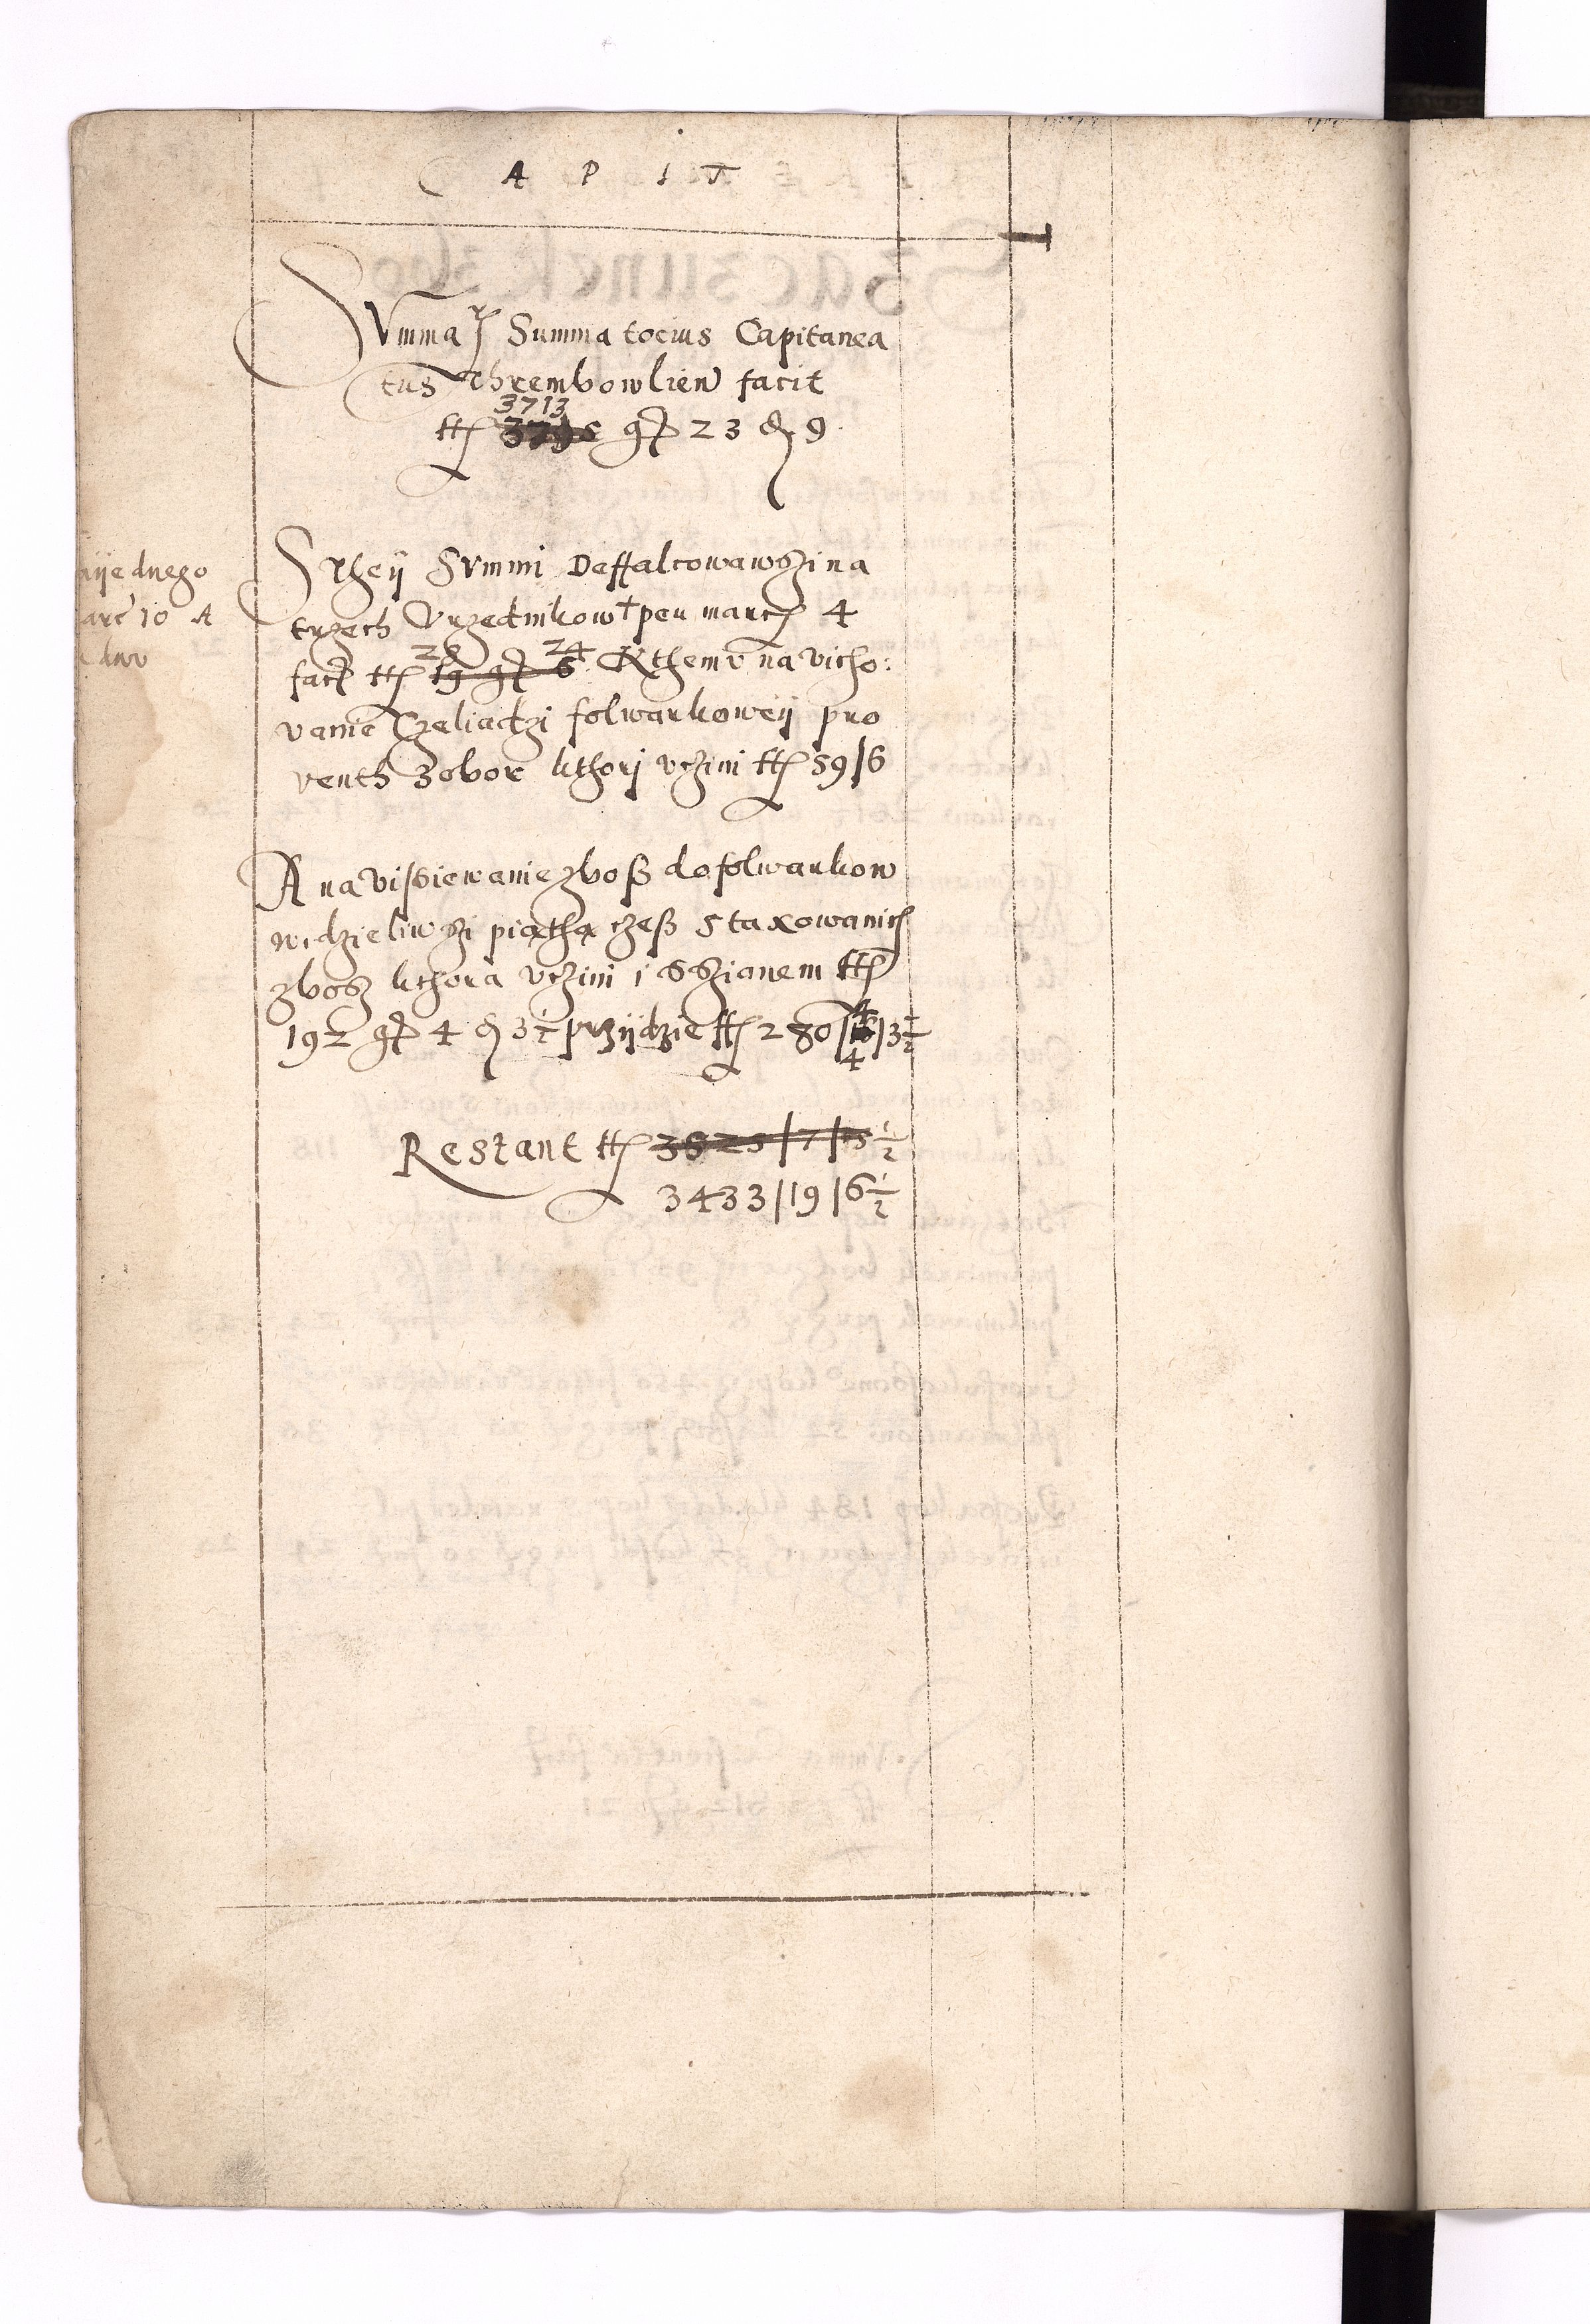 C A P I T
Summar Summa tocius Capitanea
tus Thrembowlien facit
3713
ff 3795 gr 23 d 9
S they Summi Deffalcowawszi na
trzech Vrzednikow † per marc 4
28 24
fact ff 19 gr 6 Kthemv na vicho:
vanie Czeliadzi folwarkoweij pro
venth zobor kthorj vczini ff 59/6
A na vissiewanie zboß do folwarkow
widzieliwszi piątha czeß staxowanich
zbosz kthora vczini i Sszianem ff
4
192 gr 4 d 3½ przijdzie ff 280/16/3½
4
Restant ff 3525/7/5½
3433/19/6½
ijednego
marc 10 A
dwv